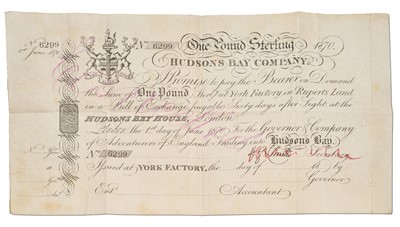 No 6299 No 6299 One Pound Sterling 1870.
June 1870
HUDSONS BAY COMPANY.
Promise to pay the Bearer on Demand
the Sum of One Pound Sterg at York Factory in Ruperts Land
in a Bill of Exchange payable Sixty days after Sight at the
HUDSONS BAY HOUSE, London
London the 1st day of June 1870 For the Governor & Company
of Adventurers of England Trading into Hudsons Bay.
No 6299 Secretary
Issued at YORK FACTORY, the day of 18 by
Governor
Entd Accountant